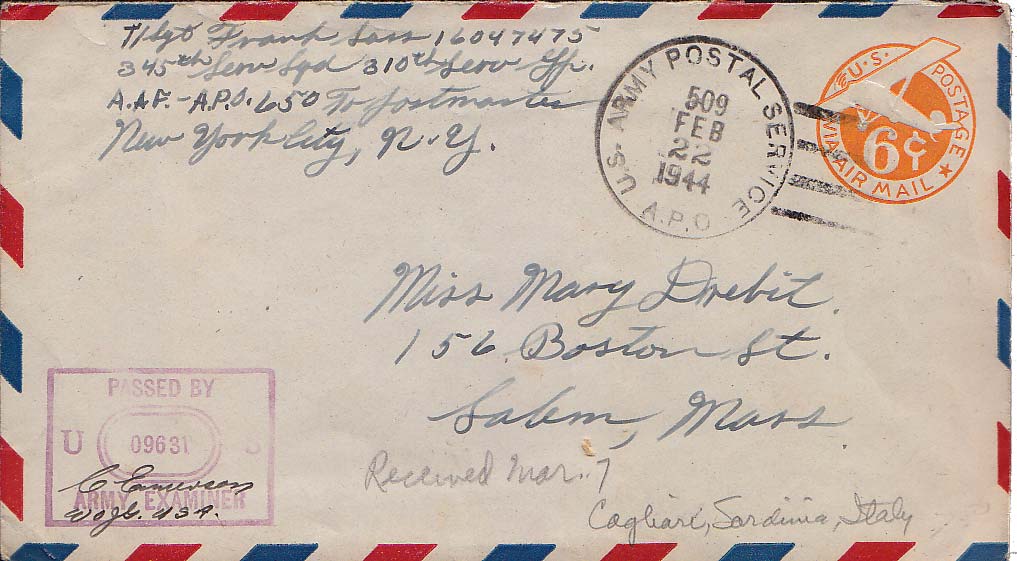 T/Sgt Frank Sass 16047475
345th Serv Sqd 310th Serv Gp.
A.A.F. - A.P.O. 650 To Postmaster
New York City, N.Y.
U.S. ARMY POSTAL SERVICE
509
FEB
22
1944
A.P.O.
U.S. POSTAGE
6¢
VIA AIR MAIL
Miss Mary Drebit
156 Boston St.
Salem, Mass
Received Mar. 7
Cagliari, Sardinia, Italy
PASSED BY
U 09631 S
ARMY EXAMINER
C Emerson
WOJG. USA.